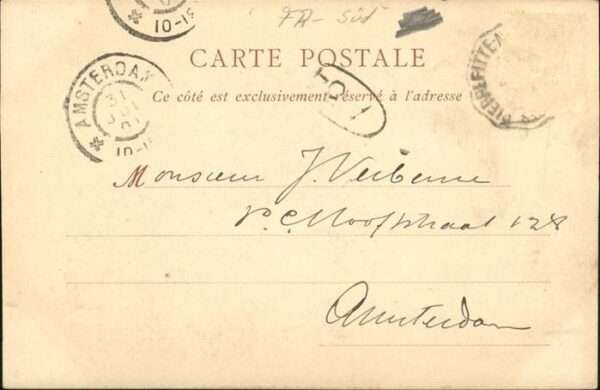 10-1
FR- Süd
CARTE POSTALE
Ce côté est exclusivement réservé à l'adresse
AMSTERDAM
31
10-1
PIERREFITTE
Monsieur J. Verberne
P.C. Hooftstraat 128
Amsterdam